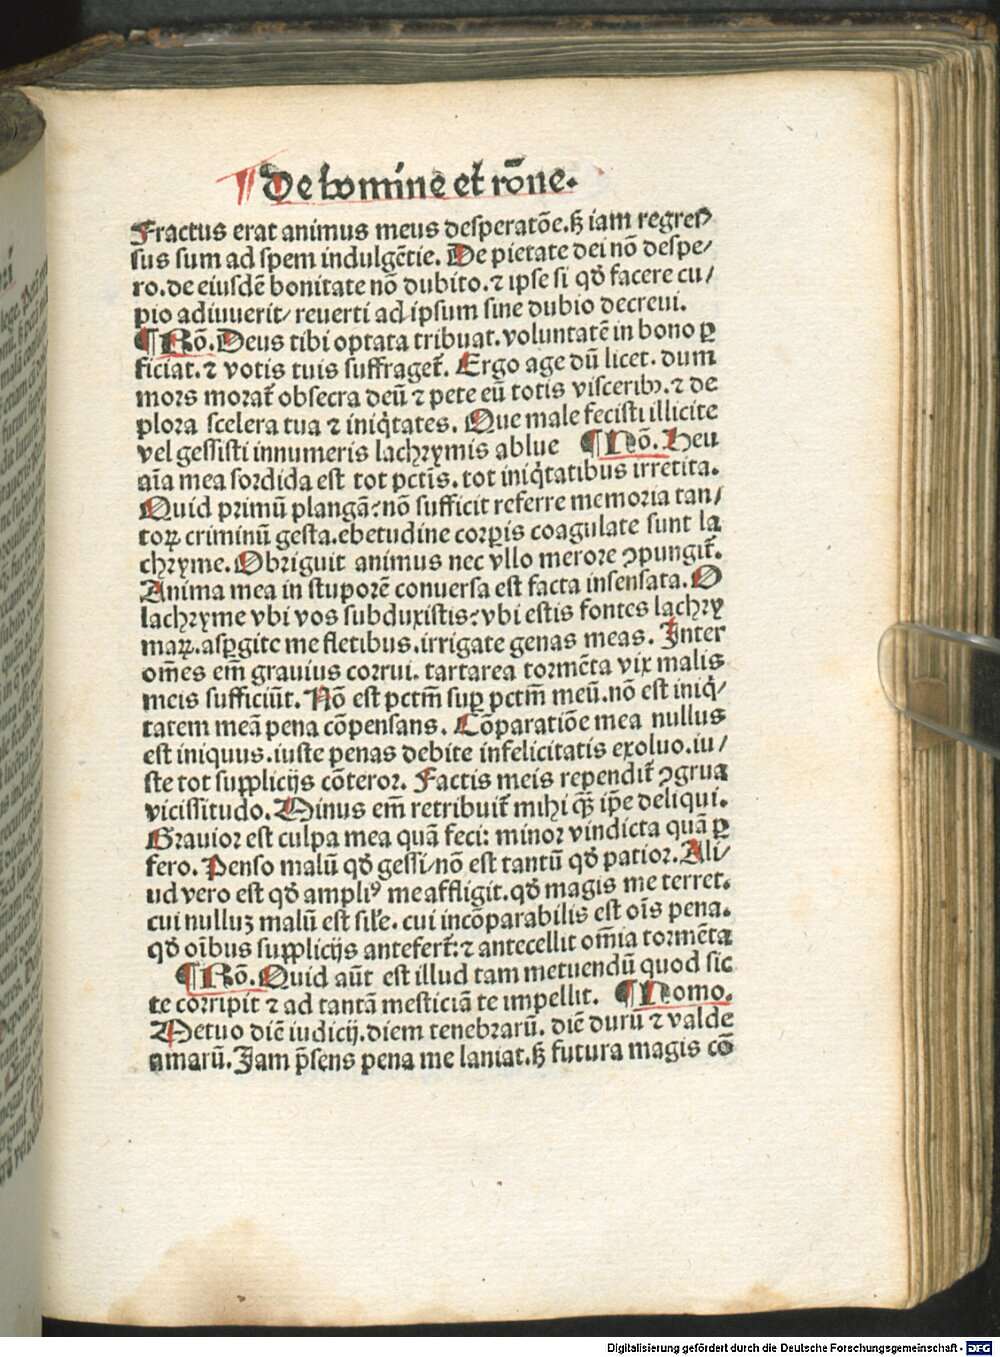 ¶ De homine et rōne.
Fractus erat animus meus desperatōe. ꝫ iam regres⸗
sus sum ad spem indulgētie. De pietate dei nō despe/
ro. de eiusdē bonitate nō dubito. ⁊ ipse si qđ facere cu/
pio adiuuerit/ reuerti ad ipsum sine dubio decreui.
¶ Rō. Deus tibi optata tribuat. voluntatē in bono ꝑ
ficiat. ⁊ votis tuis suffraget̄. Ergo age dū licet. dum
mors morat̄ obsecra deū ⁊ pete eū totis visceribꝰ. ⁊ de
plora scelera tua ⁊ iniq̇tates. Que male fecisti illicite
vel gessisti innumeris lachrymis ablue ¶ Hō. Heu
aīa mea sordida est tot pctīs. tot iniq̇tatibus irretita.
Quid primū plangā? nō sufficit referre memoria tan/
toꝝ criminū gesta. ebetudine corꝑis coagulate sunt la
chryme. Obriguit animus nec vllo merore ꝯpungit̄.
Anima mea in stuporē conuersa est facta insensata. O
lachryme vbi vos subduxistis? vbi estis fontes lachry
maꝝ. asꝑgite me fletibus. irrigate genas meas. Inter
om̄es em̄ grauius corrui. tartarea tormēta vix malis
meis sufficiūt. Nō est pctm̄ suꝑ pctm̄ meū. nō est iniq̇/
tatem meā pena cōpensans. Cōparatiōe mea nullus
est iniquus. iuste penas debite infelicitatis exoluo. iu/
ste tot supplicijs cōteror. Factis meis rependit̄ ꝯgrua
vicissitudo. Minus em̄ retribuit̄ mihi qꝫ ip̄e deliqui.
Grauior est culpa mea quā feci: minor vindicta quā ꝑ
fero. Penso malū qđ gessi/ nō est tantū qđ patior. Ali/
ud vero est qđ ampliꝰ me affligit. qđ magis me terret.
cui nulluz malū est sil̄e. cui incōparabilis est oīs pena.
qđ oībus supplicijs antefert̄: ⁊ antecellit om̄ia tormēta
¶ Rō. Quid aūt est illud tam metuendū quod sic
te corripit ⁊ ad tantā mesticiā te impellit. ¶ Homo.
Metuo diē iudicij. diem tenebrarū. diē durū ⁊ valde
amarū. Jam p̄sens pena me laniat. ꝫ futura magis cō
Digitalisierung gefördert durch die Deutsche Forschungsgemeinschaft - DFG